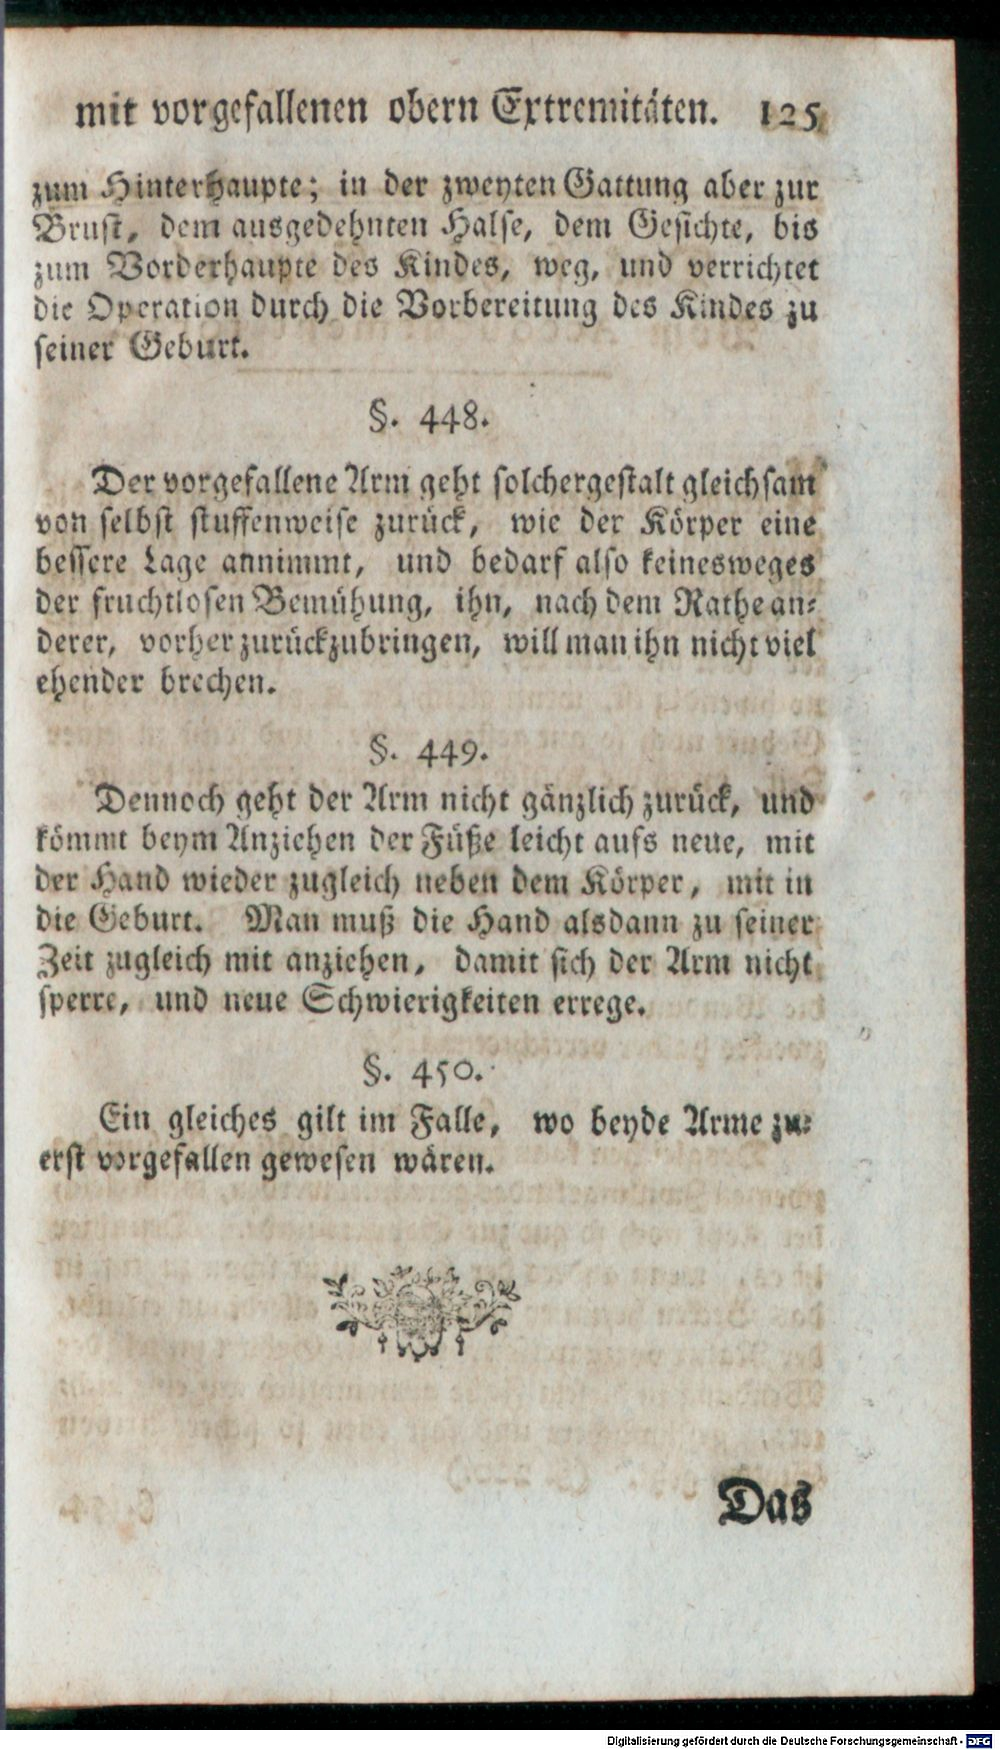 mit vorgefallenen obern Extremitäten. 125
zum Hinterhaupte; in der zweyten Gattung aber zur
Brust, dem ausgedehnten Halse, dem Gesichte, bis
zum Vorderhaupte des Kindes, weg, und verrichtet
die Operation durch die Vorbereitung des Kindes zu
seiner Geburt.
§. 448.
Der vorgefallene Arm geht solchergestalt gleichsam
von selbst stuffenweise zurück, wie der Körper eine
bessere Lage annimmt, und bedarf also keinesweges
der fruchtlosen Bemühung, ihn, nach dem Rathe an-
derer, vorher zurückzubringen, will man ihn nicht viel
ehender brechen.
§. 449.
Dennoch geht der Arm nicht gänzlich zurück, und
kömmt beym Anziehen der Füße leicht aufs neue, mit
der Hand wieder zugleich neben dem Körper, mit in
die Geburt. Man muß die Hand alsdann zu seiner
Zeit zugleich mit anziehen, damit sich der Arm nicht
sperre, und neue Schwierigkeiten errege.
§. 450.
Ein gleiches gilt im Falle, wo beyde Arme zu-
erst vorgefallen gewesen wären.
Das
Digitalisierung gefördert durch die Deutsche Forschungsgemeinschaft - DFG